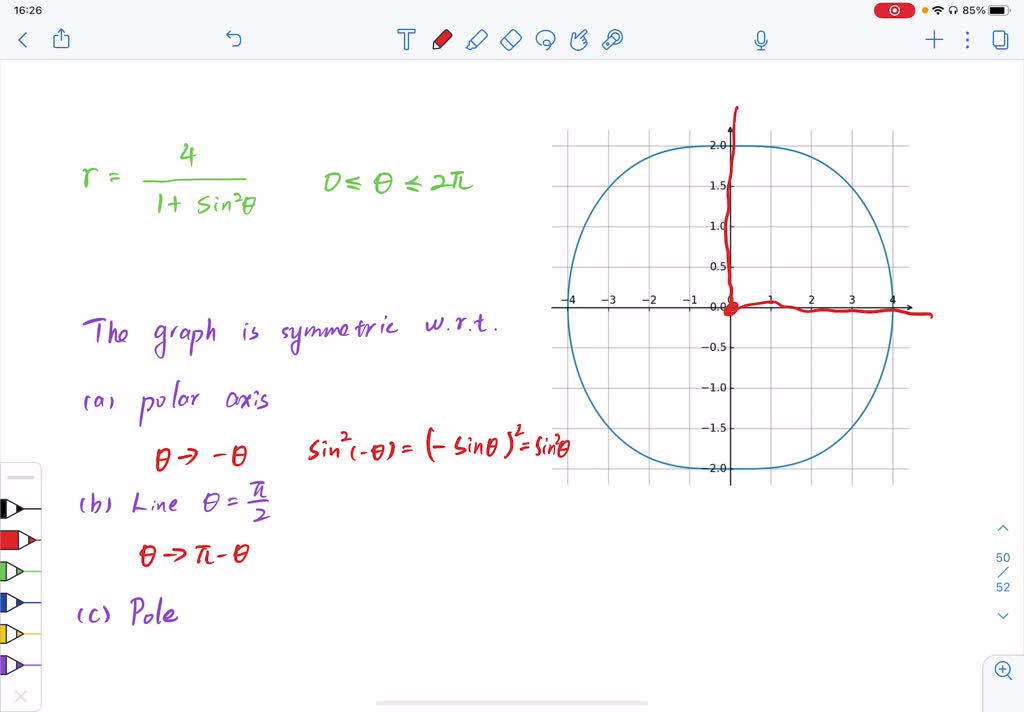 16:26
85%
r = 4 / (1 + sin²θ)   0 ≤ θ ≤ 2π
The graph is symmetric w.r.t.
(a) polar axis
θ → -θ   sin²(-θ) = (- sinθ)² = sin²θ
(b) Line θ = π/2
θ → π - θ
(c) Pole
2.0
1.5
1.0
0.5
0.0
-4 -3 -2 -1 0 1 2 3 4
−0.5
−1.0
−1.5
−2.0
50
/
52